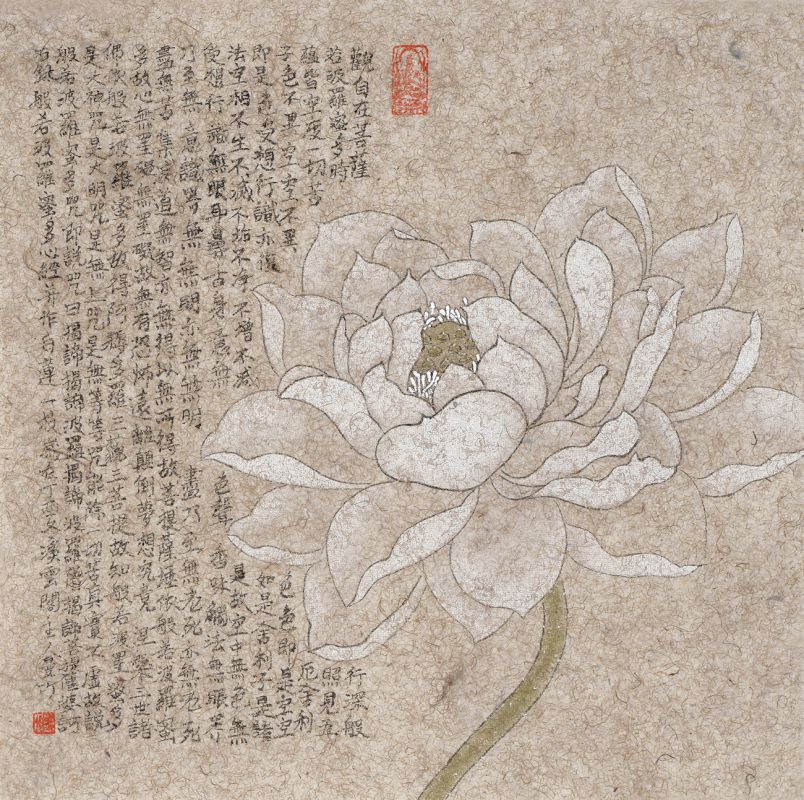 觀自在菩薩行深般
若波羅蜜多時照見五
蘊皆空度一切苦厄舍利
子色不異空空不異色色即是空空
即是色受想行識亦復如是舍利子是諸
法空相不生不滅不垢不淨不增不減是故空中無色無
受想行識無眼耳鼻舌身意無色聲香味觸法無眼界
乃至無意識界無無明亦無無明盡乃至無老死亦無老死
盡無苦集滅道無智亦無得以無所得故菩提薩埵依般若波羅蜜
多故心無罣礙無罣礙故無有恐怖遠離顛倒夢想究竟涅槃三世諸
佛依般若波羅蜜多故得阿耨多羅三藐三菩提故知般若波羅蜜多
是大神咒是大明咒是無上咒是無等等咒能除一切苦真實不虛故說
般若波羅蜜多咒即說咒曰揭諦揭諦波羅揭諦波羅僧揭諦菩提薩婆訶
右錄般若波羅蜜多心經并作白蓮一枝丁酉雲間生人